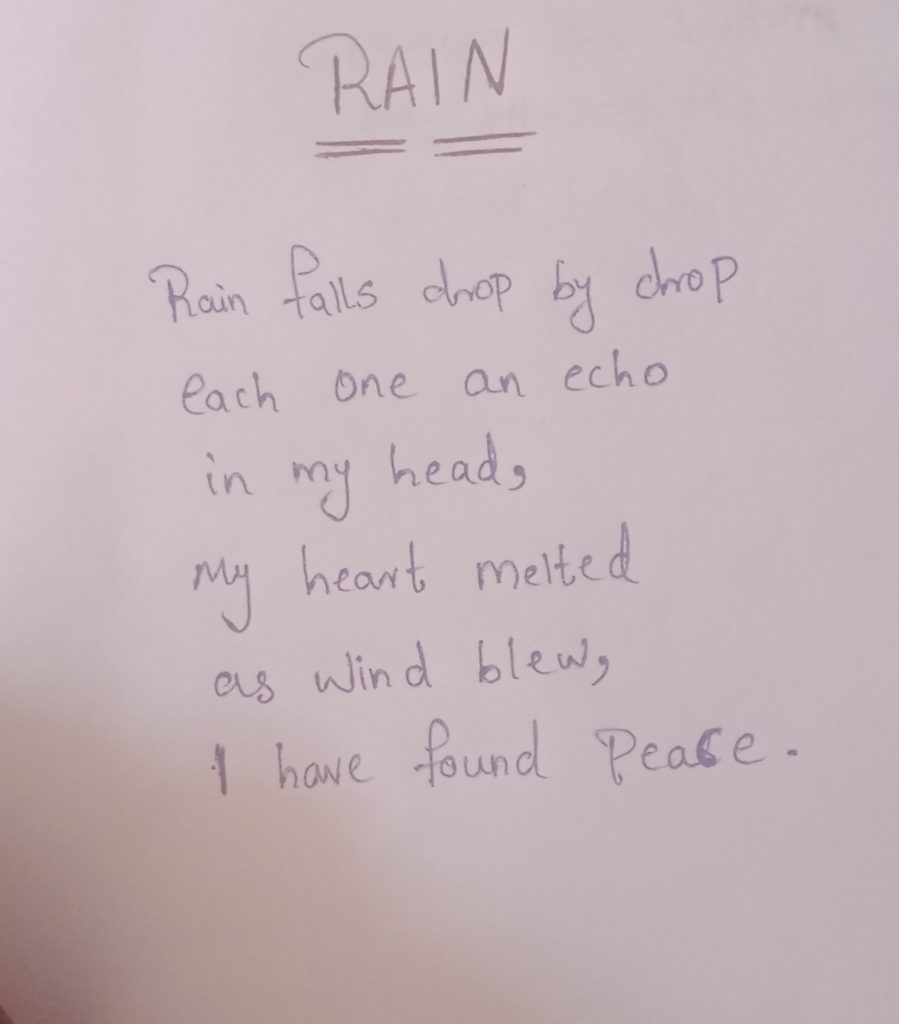 RAIN
Rain falls drop by drop
each one an echo
in my head,
My heart melted
as wind blew,
I have found Peace.